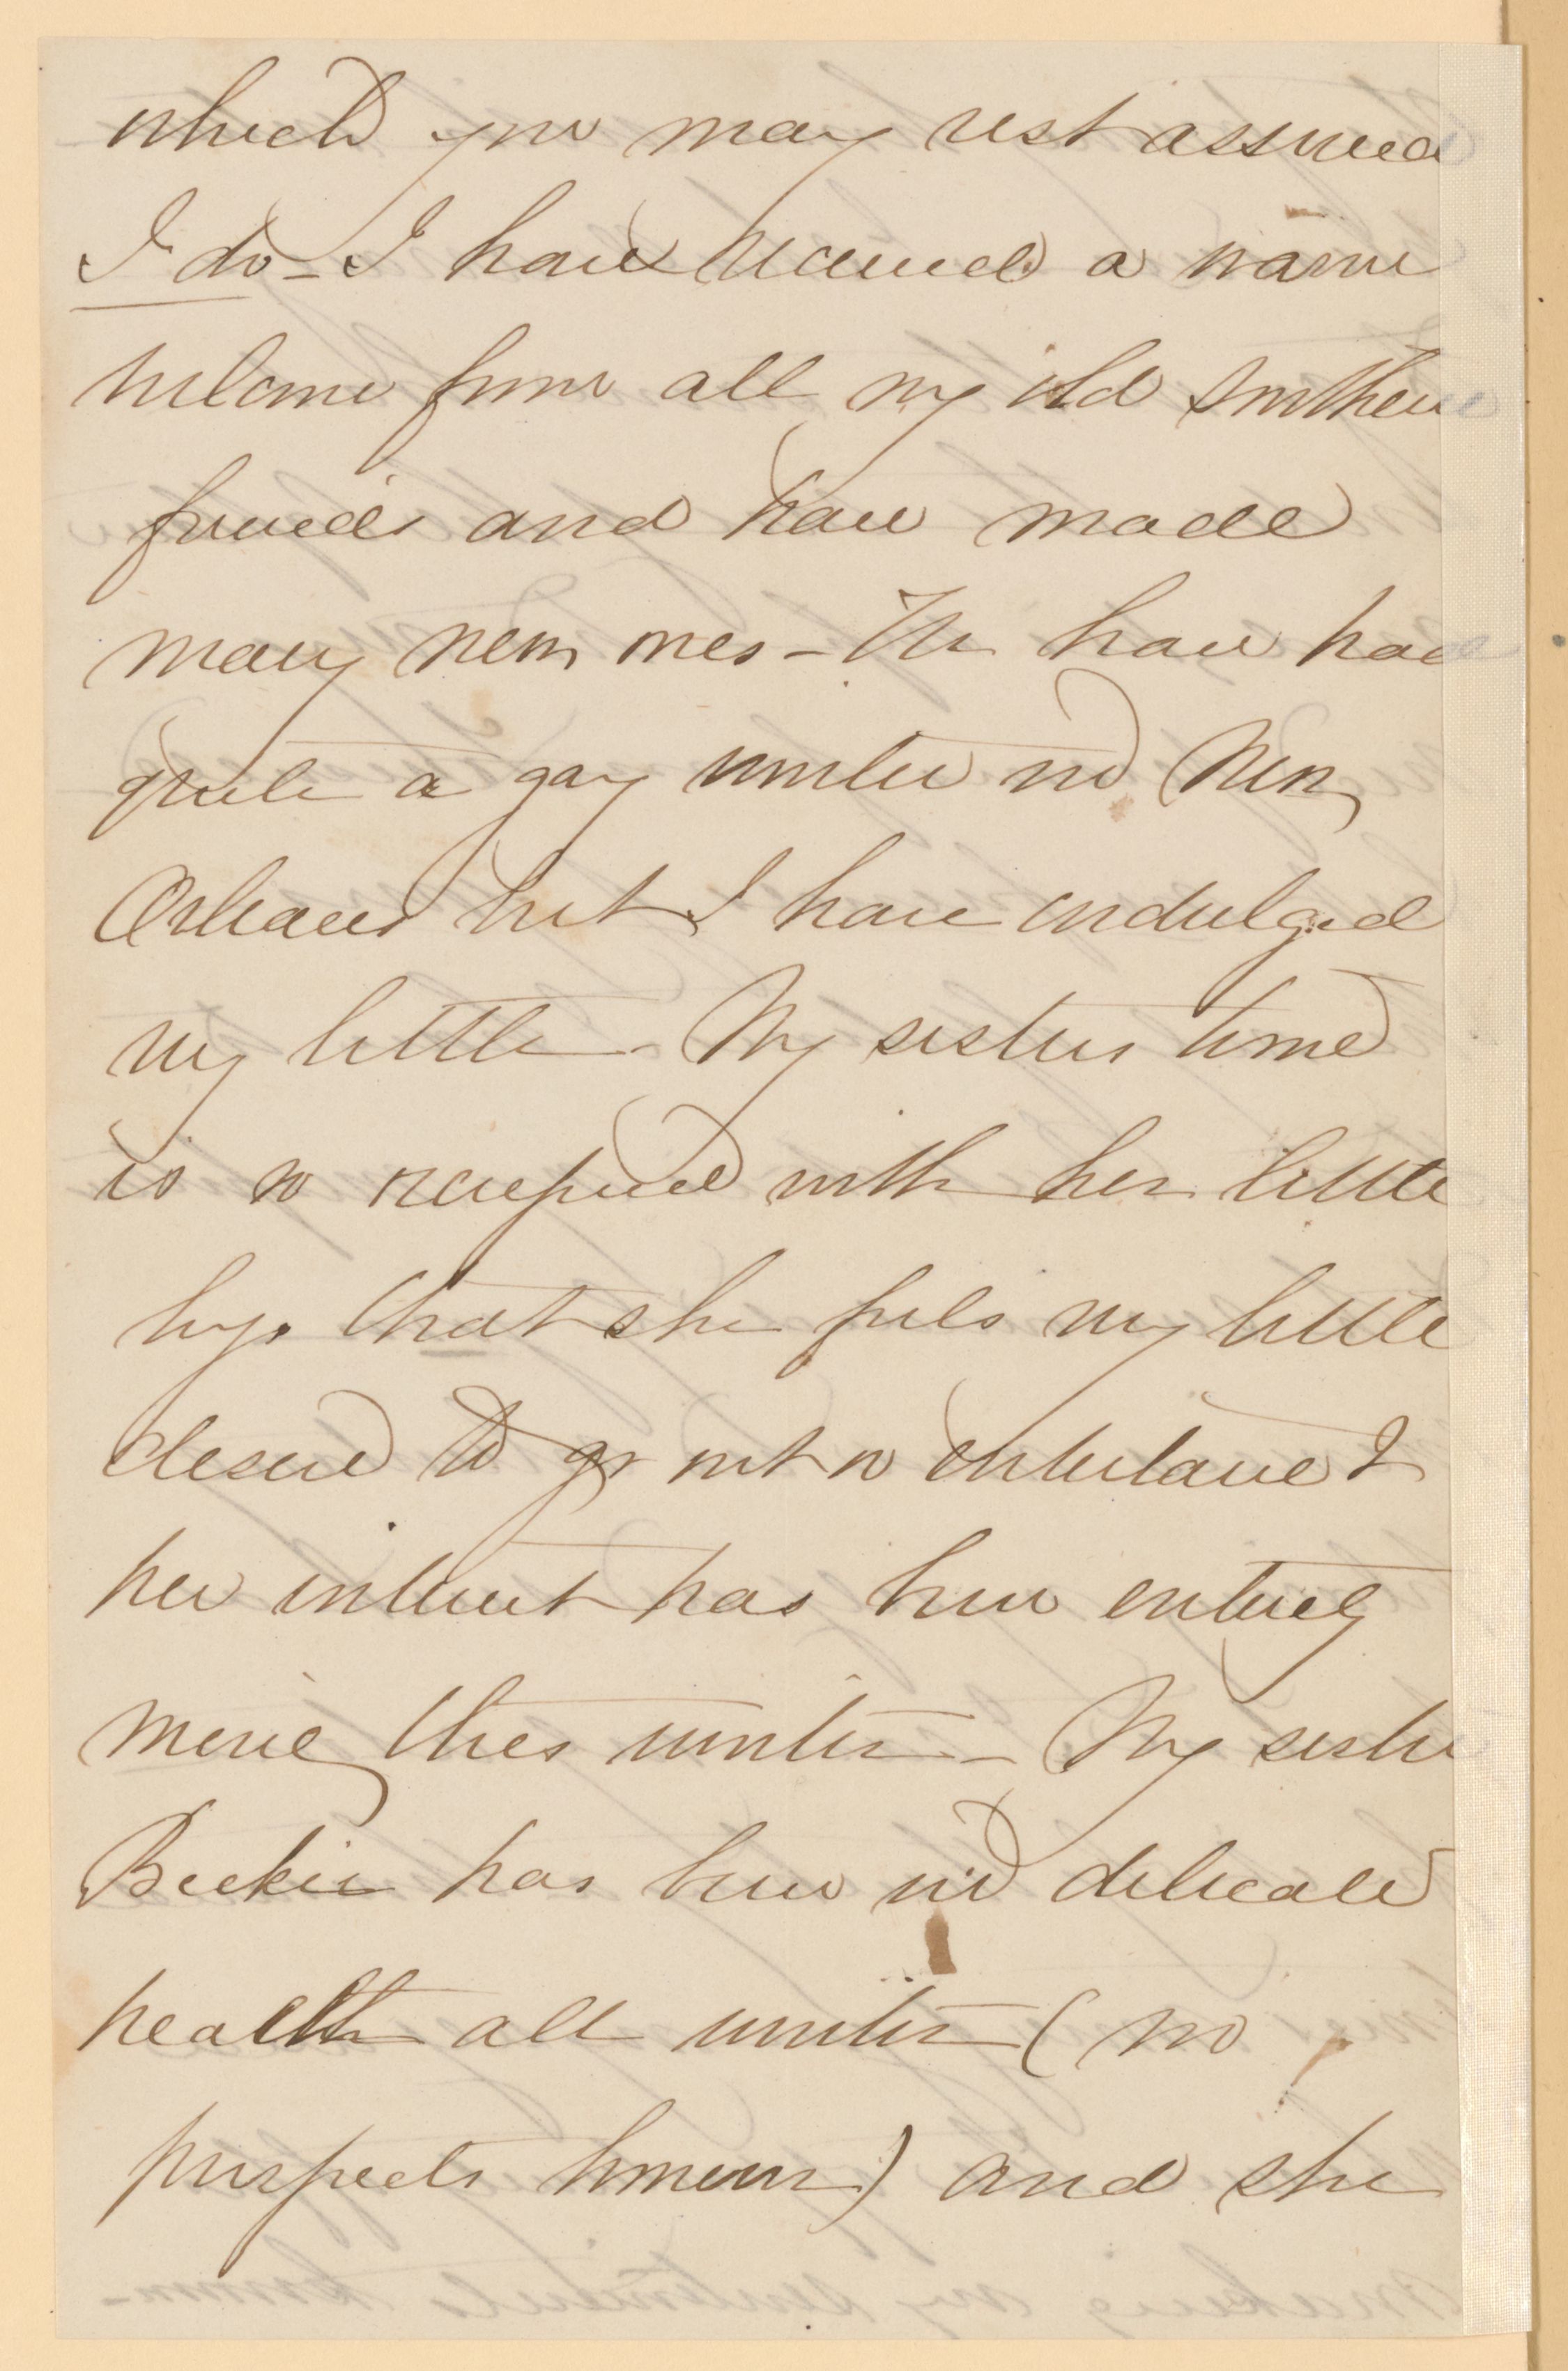 which you may rest assured
I do - I have received a warm
welcome from all my old Southern
friends and have made
many new ones - We have had
quite a gay winter in New
Orleans but I have indulged
very little - My sisters time
is so occupied with her little
boys that she feels very little
desire to go out or entertain &
her interest has been entirely
mine this winter - My sister
Beckie has been in delicate
health all winter (no
prospects however) and she